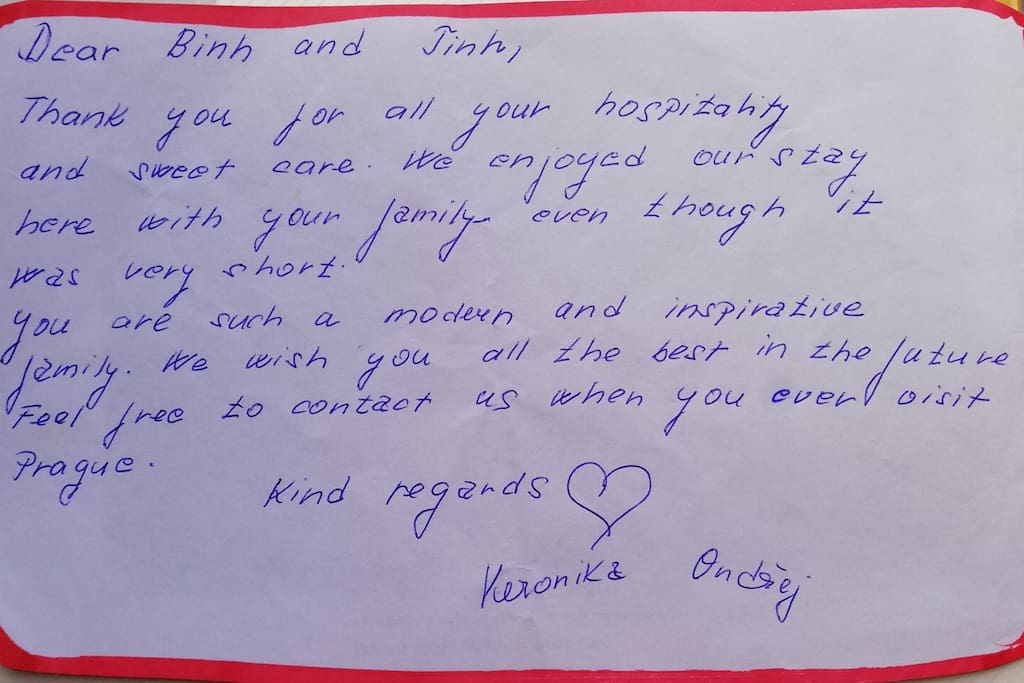 Dear Binh and Tinh,
Thank you for all your hospitality
and sweet care. We enjoyed our stay
here with your family even though it
was very short.
You are such a modern and inspirative
family. We wish you all the best in the future
Feel free to contact us when you ever visit
Prague.
Kind regards
Veronika Ondřej